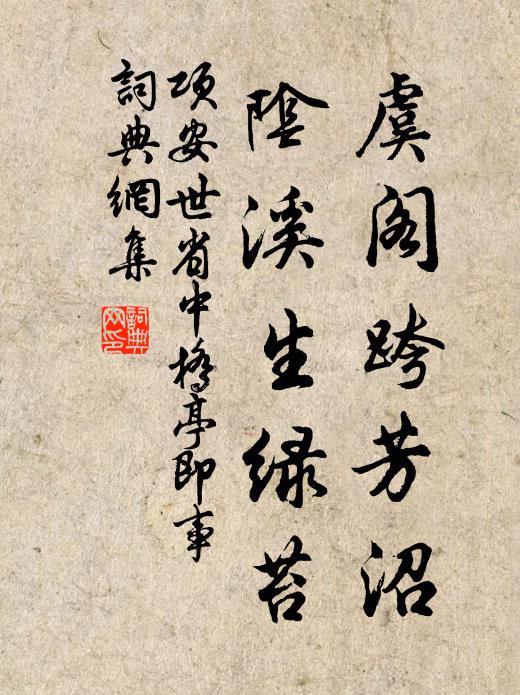 虞阁跨芳沼
陰溪生绿苔
项安世省中橋亭即事
詞典網集
詞典網印